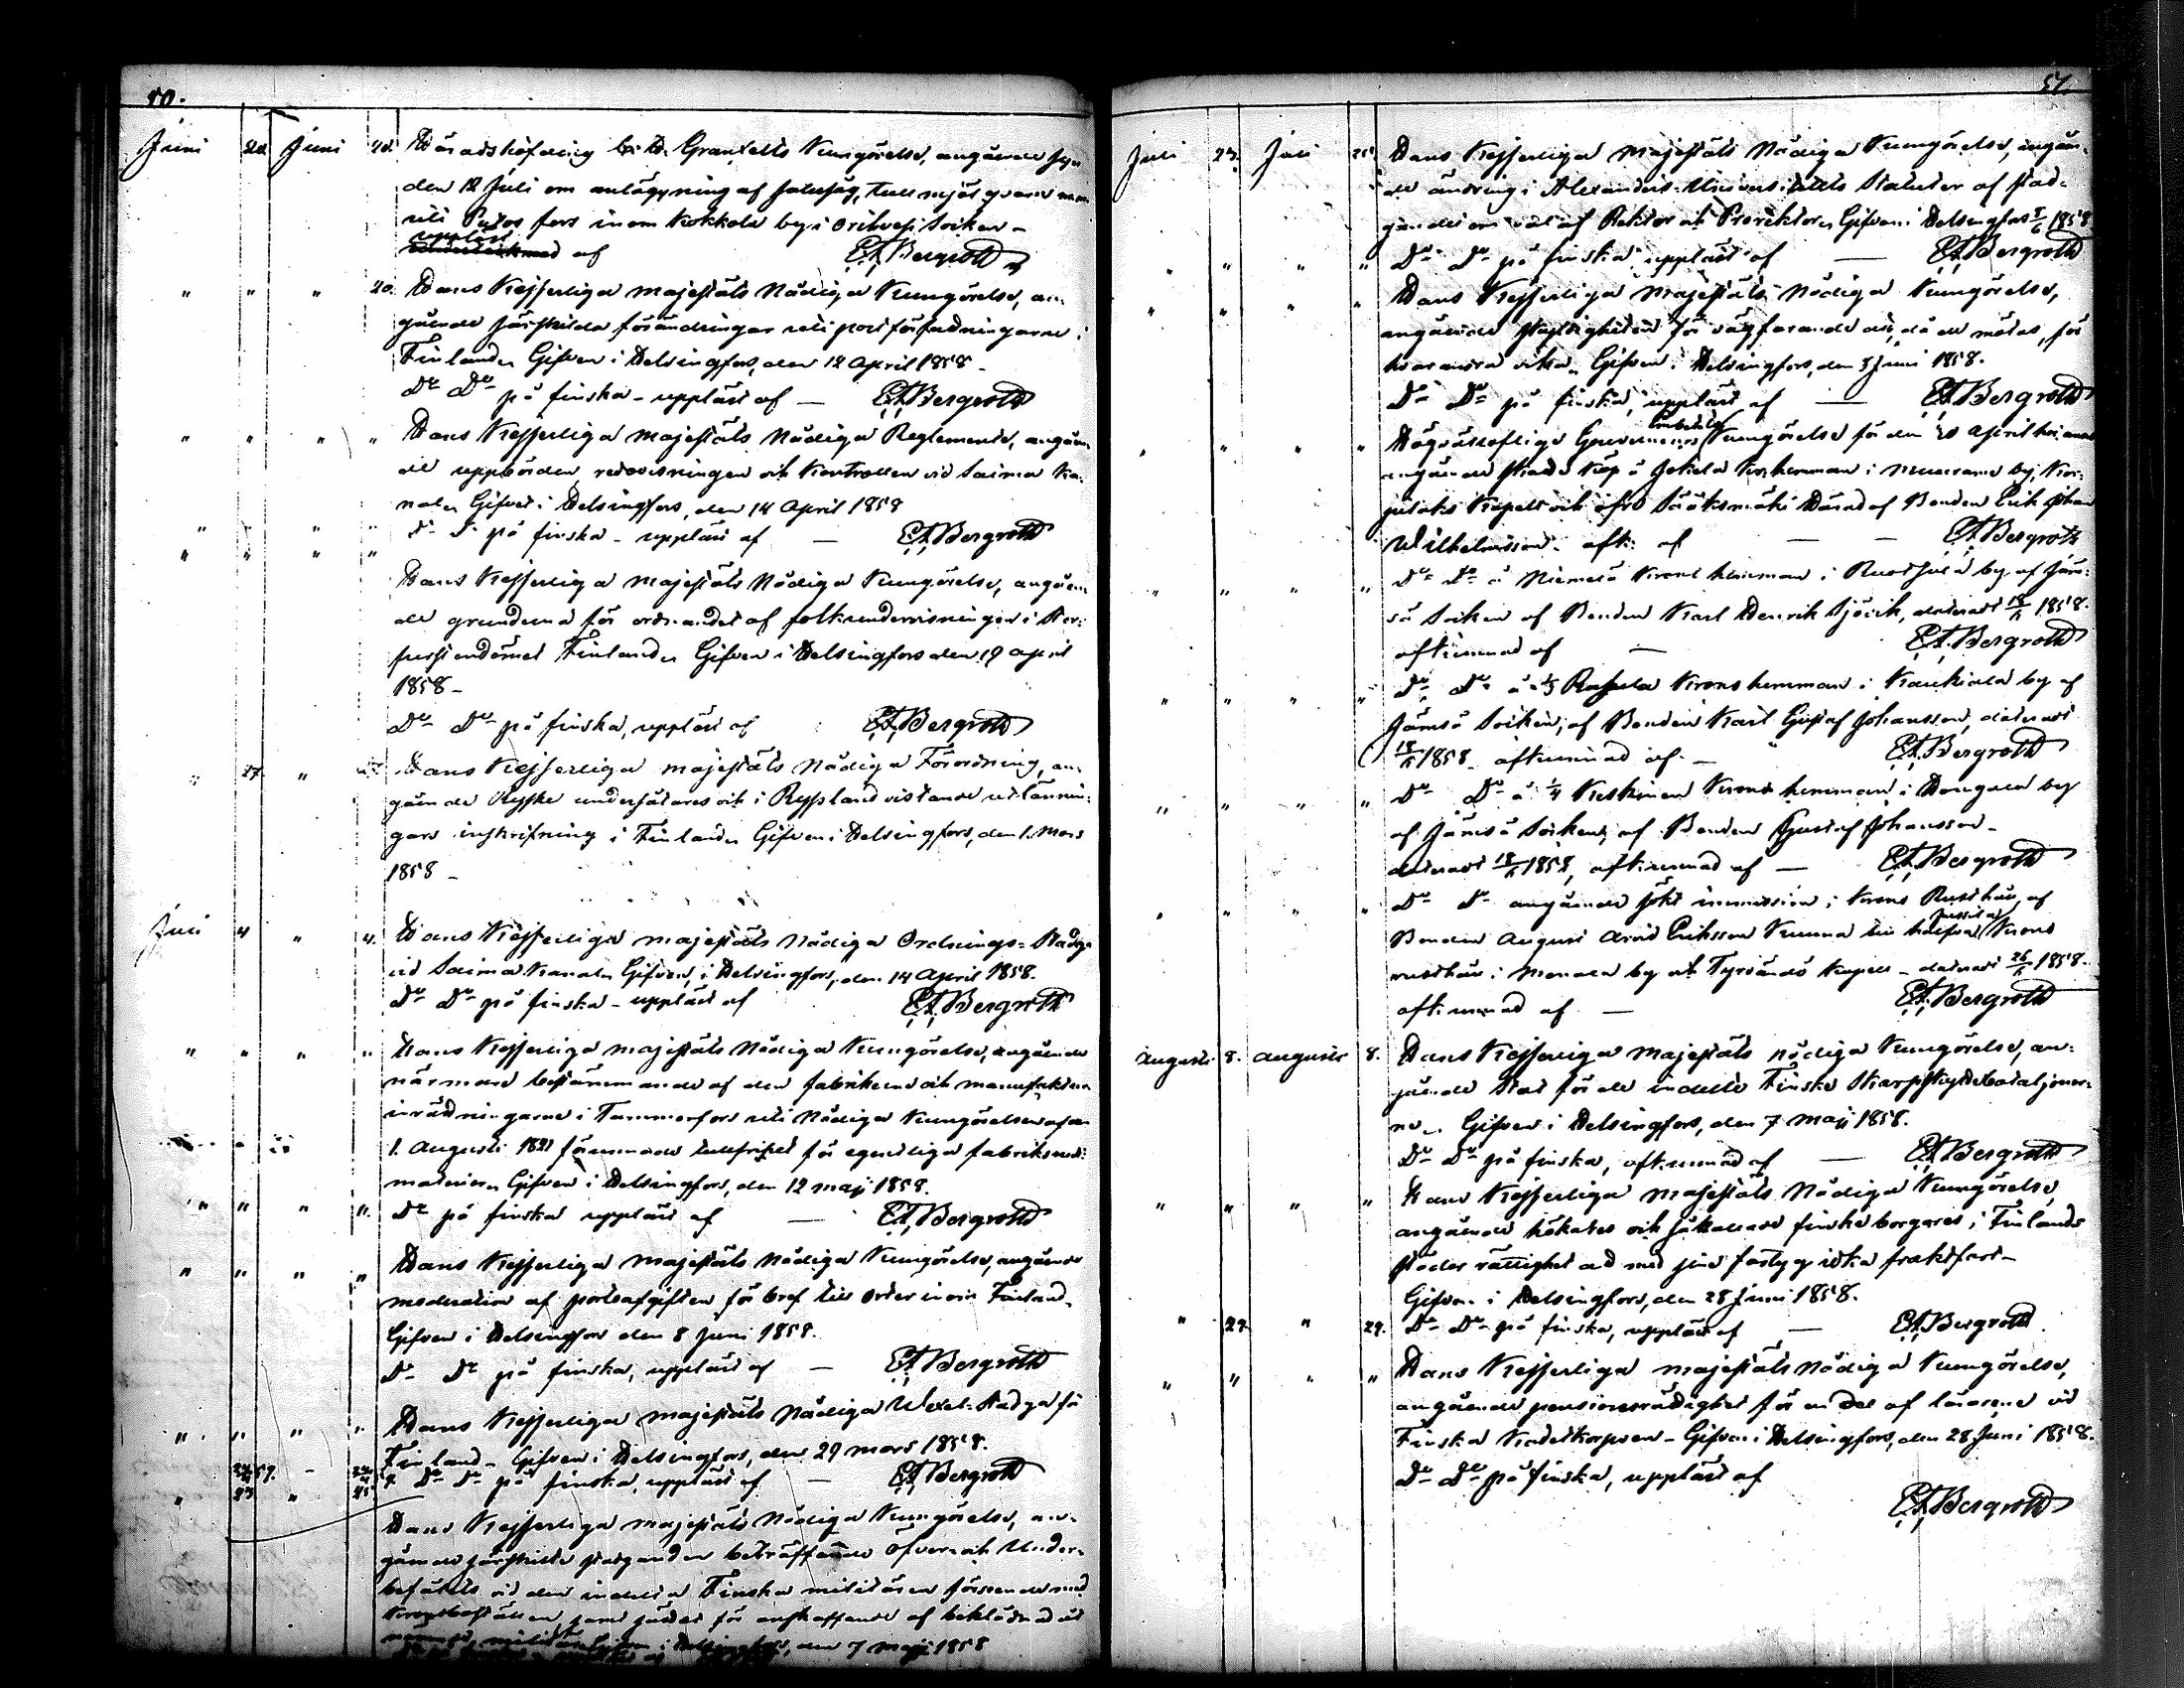 50.
Juni 20. Juni 20. Häradshöfding Granfelts Kungörelse, angående syn
den 12 Juli om anläggning af salusåg, tullmjöl qvarn
uti fors inom Kokkola by i Orihvesi Soiken –
uppläst af E.A. Bergroth
" " " 20. Hans Kejserliga Majestäts Nådiga Kungörelse, an-
gående särskilda förändringar uti postförfadningarne i
Finland. Gifven i Helsingfors, den 12 April 1858 –
Do Do på finska – uppläst af — E.A. Bergroth
" " " " Hans Kejserliga Majestäts Nådiga Reglemente, angåen-
de uppbörden, redovisningen och Kontrollen vid Saima Ka-
nal. Gifvet i Helsingfors, den 14 April 1858
" " " Do Do på finska – uppläst af — E.A. Bergroth
" " " "
Hans Kejserliga Majestäts Nådiga Kungörelse, angåen-
de grunderna för ordnandet af folkundervisningen i Stor-
furstendömet Finland. Gifven i Helsingfors den 19 April
1858 –
Do Do på finska, uppläst af E.A. Bergroth
" 27. " 27. Hans Kejserliga Majestäts Nådiga Förordning, an-
gående Ryske undersåtares och i Ryssland vistande utlännin-
gars inskrifning i Finland. Gifven i Helsingfors, den 1. Mars
1858 –
Juli 4 " 4. Hans Kejserliga Majestäts Nådiga Ordnings-Stadga
vid Saima Kanal. Gifven, i Helsingfors, den 14 April 1858.
Do Do på finska – uppläst af E.A. Bergroth
" " " " Hans Kejserliga Majestäts Nådiga Kungörelse, angående
närmare bestämmande af den fabrikerne och manufaktur
inrättningarne i Tammerfors uti Nådiga Kungörelsen af den
1. Augusti 1821 förunnade tullfrihet för egentliga fabriksma-
materier. Gifven i Helsingfors, den 12 Maj 1858.
" " " ". Do på finska uppläst af — E.A. Bergroth
" " " " Hans Kejserliga Majestäts Nådiga Kungörelse, angående
moderation af portoafgiften för bref till orter inom Finland.
Gifven i Helsingfors den 8 Juni 1858.
Do Do på finska, uppläst af — E.A. Bergroth
" " " " Hans Kejserliga Majestäts Nådiga Wexel-Stadga för
Finland – Gifven i Helsingfors, den 29 Mars 1858.
Do Do på finska, uppläst af — E.A. Bergroth
" 23 " 25
Hans Kejserliga Majestäts Nådiga Kungörelse, an-
gående särskilte stadganden beträffande Öfver- och Under-
befälets vid den indelta Finska militären förseende med
Kronoboställen, samt sättet för anskaffande af beklädnad åt
Gifven i Helsingfors, den 7 Maji 1858
51.
Juli 23. Juli 25. Hans Kejserliga Majestäts Nådiga Kungörelse, angåen-
de ändring i Alexanders-Universitetets Statuter af stad-
gandet om val af Rektor och Prorektor. Gifven i Helsingfors 8/6 1858
" " " " Do Do på finska uppläst af — E.A. Bergroth
" " " " Hans Kejserliga Majestäts Nådiga Kungörelse,
angående skyldigheten för vägfarande att, då de mötas, för
hvarandra vika. Gifven i Helsingfors, den 8 Juni 1858.
Do Do på finska, uppläst af — E.A. Bergroth
" " " " Högvälloflige Gouvernements Kungörelse för den 20 April
angående Skatte Köp å Jokela Kronhemman i by,
Kapell och öfre Sääksmäki Härad af Bonden Erik Johan
Wilhelmsson. aftk. af — — E.A. Bergroth
" " " " Do Do å Niemelä Krono hemman i by af Jäm-
sä Soiken af Bonden Karl Henrik Sjövik, dateradt 18/5 1858.
aftkunnad af — E.A. Bergroth
" " " " Do Do å 1/3 Krono hemman i by af
Jämsä Soiken, af Bonden Karl Gustaf Johansson, dateradt
18/5 1858. aftkunnad af — E.A. Bergroth
" " " " Do Do å 1/4 Keskinen Krono hemman i by
af Jämsä Soiken, af Bonden Gustaf Johansson –
dateradt 18/5 1858, aftkunnad af — E.A. Bergroth
" " " " Do Do angående sökt immission i Krono Rusthåll, af
Bonden August Arvid Eriksson Kunna till halfva Jussila Krono
rusthåll i by och Tyrvändö Kapell – dateradt 26/5 1858.
aftkunnad af — E.A. Bergroth
Augusti 8. Augusti 8. Hans Kejserliga Majestäts nådiga Kungörelse, an-
gående Stat för de indelte Finske Skarpskyttebataljoner-
ne. Gifven i Helsingfors, den 7 Maji 1858.
Do Do på finska, aftkunnad af — E.A. Bergroth
" " " " Hans Kejserliga Majestäts Nådiga Kungörelse,
angående hökares och så kallade finske borgares i Finlands
städer rättighet att med sina fartyg idka fraktfart –
Gifven i Helsingfors, den 28 Juni 1858.
" 29 " 29. Do Do på finska, uppläst af — E.A. Bergroth
" " " " Hans Kejserliga Majestäts Nådiga Kungörelse,
angående pensionsrättighet för en del af lärarena vid
Finska Kadettkorpsen – Gifven i Helsingfors, den 28 Juni 1858.
Do Do på finska, uppläst af
E.A. Bergroth